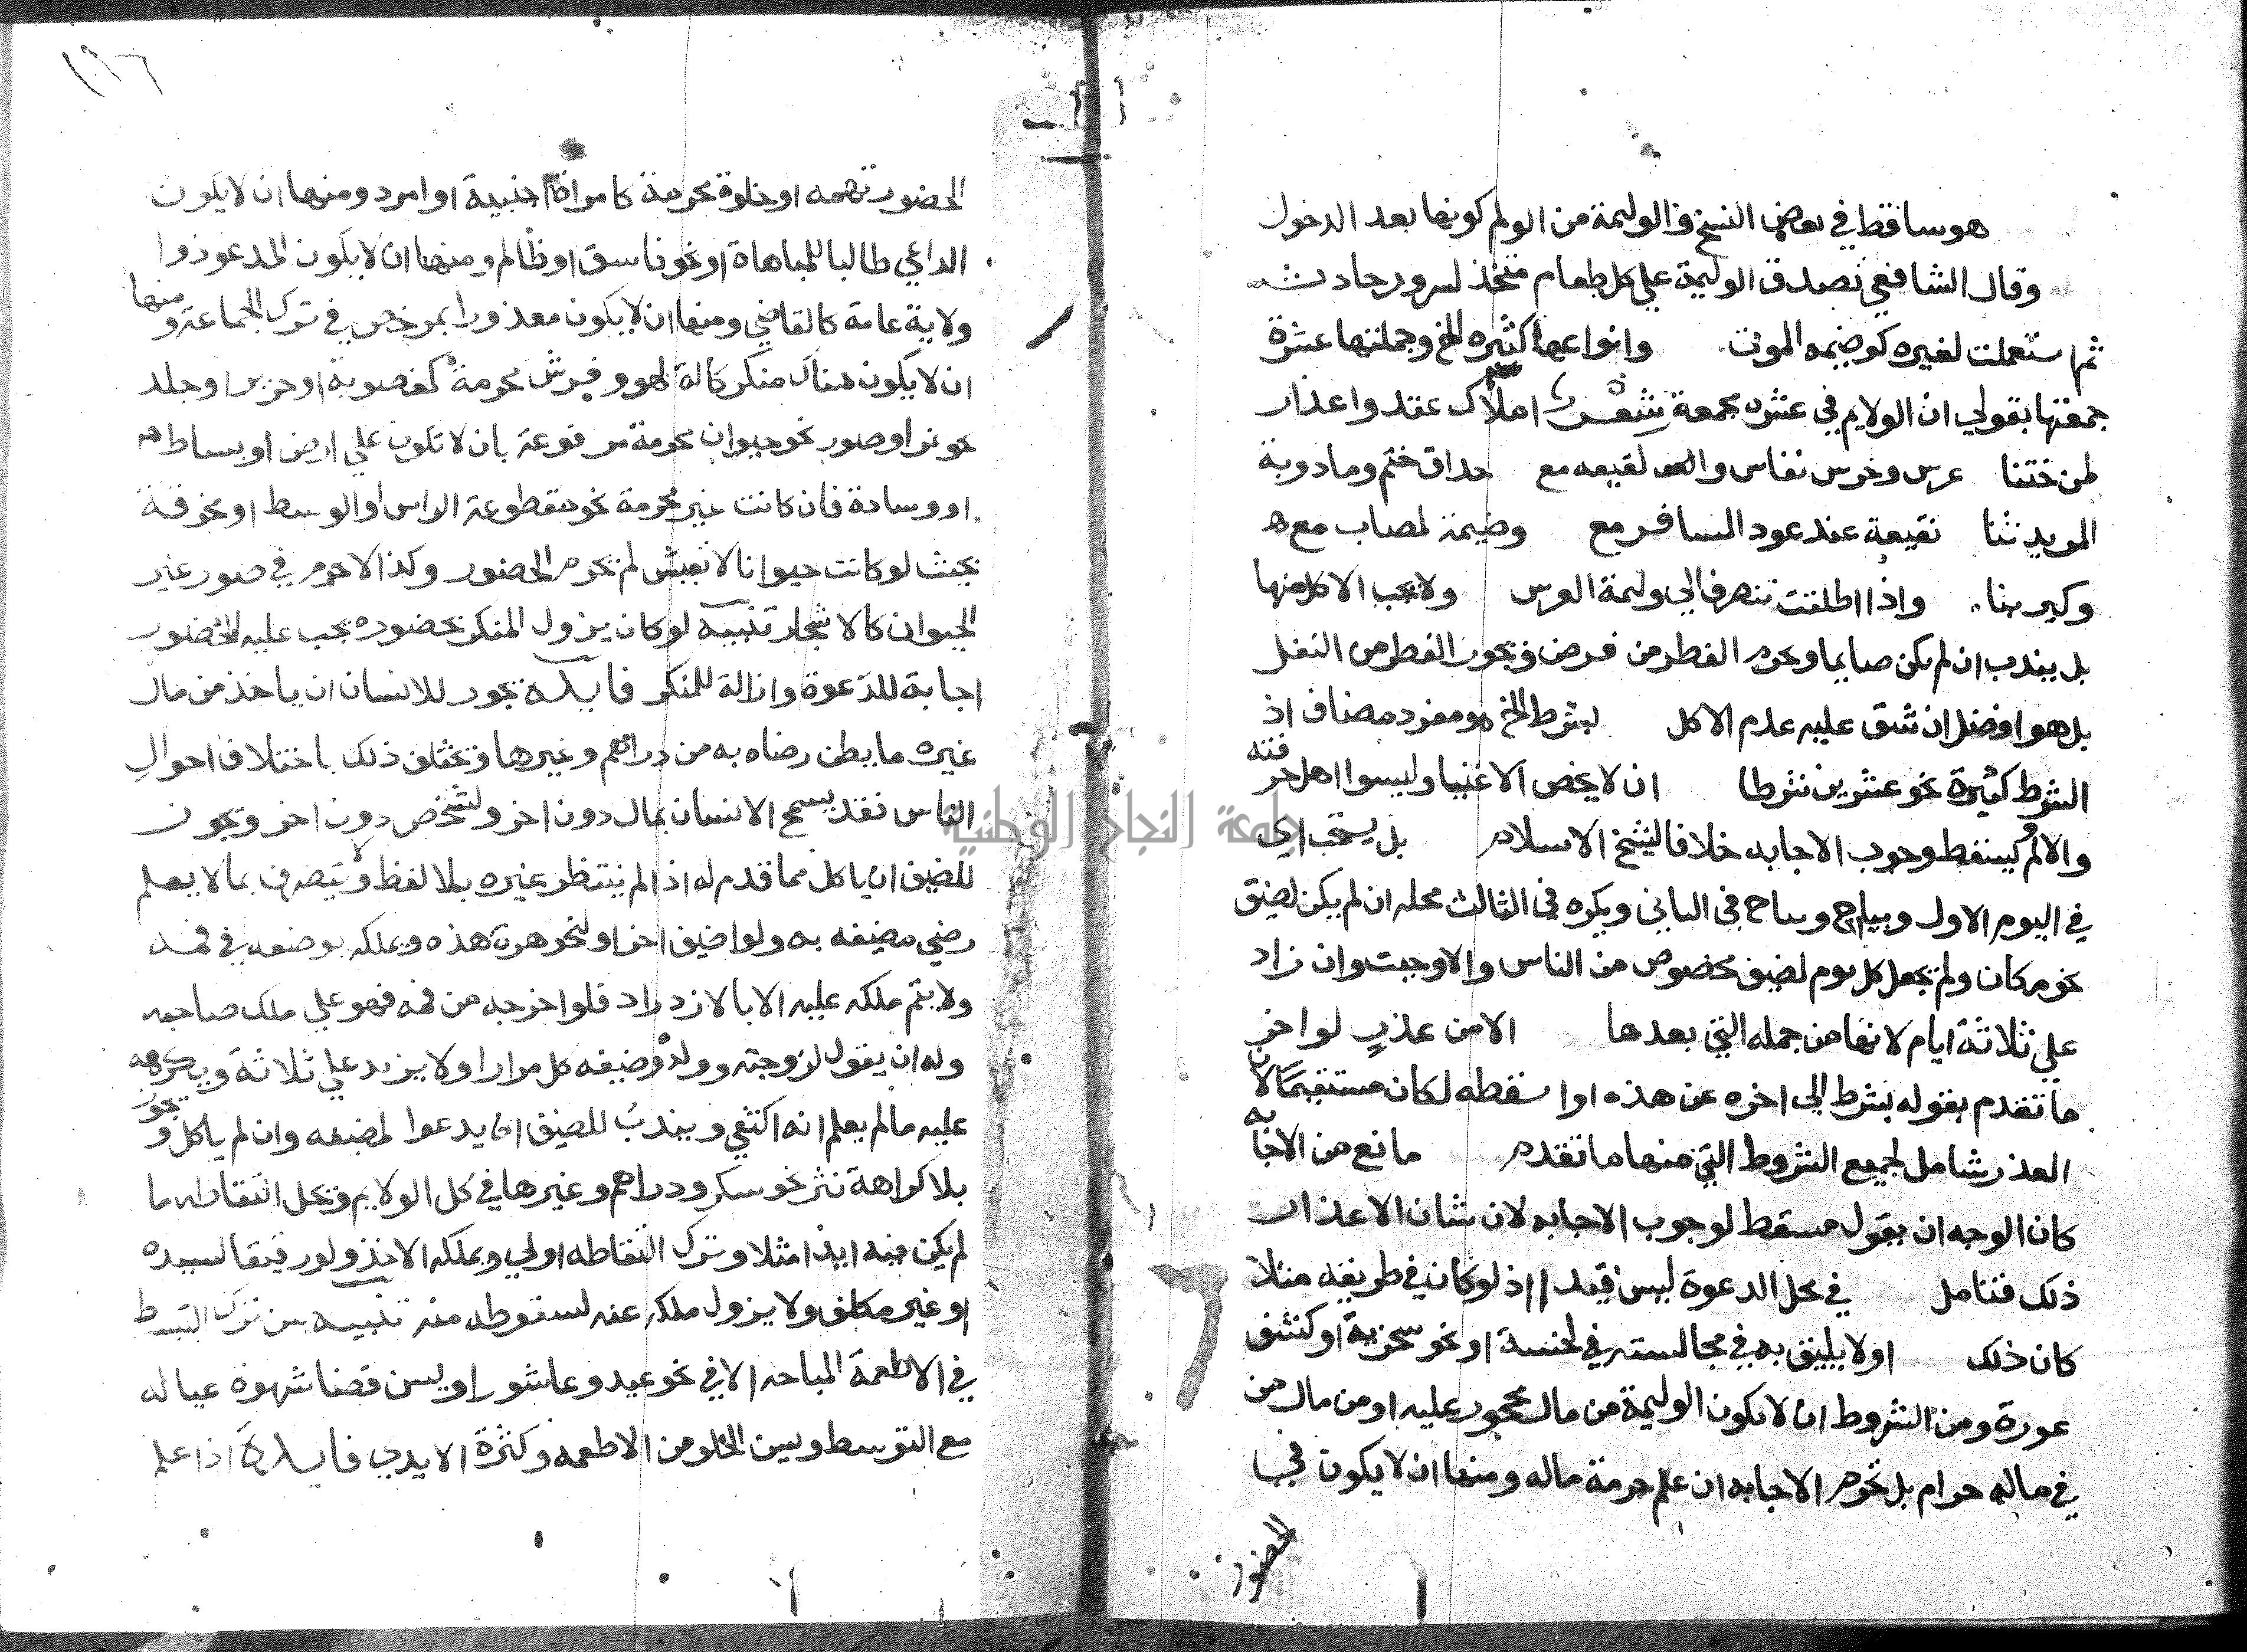 هو ساقط في بعض النسخ والوليمة من الولم كونها بعد الدخول
وقال الشافعي تصدق الوليمة علي كل طعام متخذ لسرور حادث
ثم استعملت لغيره كوضيمه الموت وانواعها كثيره الخ وجملتها عشرة
جمعتها بقولي ان الولايم في عشرة مجمعة املاك عقد واعذار
لمن ختنا عرس وخرس نفاس والعقيقه مع حداق ختم ومادوبة
المريد ثنا نقيعة عند عود المسافر مع وضيمة لمصاب مع
وكير بنا واذا اطلقت تنصرف الي وليمة العرس ولا يجب الاكل منها
بل يندب ان لم يكن صايما ويحرم الفطر من فرض ويجوز الفطر من النفل
بل هو افضل ان شق عليه عدم الاكل بشرط الخ هو مفرد مضاف اذ
الشرط كثيرة نحو عشرين شرطا ان لا يخص الاغنيا وليسوا اهل حرفته
والا لم يسقط وجوب الاجابه خلافا لشيخ الاسلام بل يستحب اي
في اليوم الاول ويباح في الثاني ويكره في الثالث محله ان لم يكن لضيق
نحو مكان ولم يجعل كل يوم لضيف مخصوص من الناس والا وجبت وان زاد
علي ثلاثة ايام لانها من جمله التي بعدها الا من عذر لو اخر
ما تقدم بقوله بشرط الي اخره عن هذه او اسقطه لكان مستقيما لان
العذر شامل لجميع الشروط التي منها ما تقدم مانع من الاجابه
كان الوجه ان يقول مسقط لوجوب الاجابه لان شان الاعذار
ذلك فتامل في محل الدعوة ليس قيد اذ لو كان في طريقه مثلا
كان ذلك او لا يليق به في مجالسته لخسة او نحو سخرية او كشف
عورة ومن الشروط ان لا يكون الوليمة من مال محجور عليه او من مال من
في ماله حرام بل تحرم الاجابه ان علم حرمة ماله ومنها ان لا يكون في
الحضور
١٩٦
الحضور تهمه او خلوة محرمة كامراة اجنبية او امرد ومنها ان لا يكون
الداعي طالبا للمباهاة او نحو فاسق او ظالم ومنها ان لا يكون المدعو ذوا
ولاية عامة كالقاضي ومنها ان لا يكون معذورا بمرخص في ترك الجماعة ومنها
ان لا يكون هناك منكر كالة لهو وفرش محرمة كمغصوبة او حرير او جلد
نحو نمر او صور نحو حيوان محرمة مرفوعة بان لا تكون علي ارض او بساط
او وسادة فان كانت غير محرمة نحو مقطوعة الراس او الوسط او مخرقة
بحيث لو كانت حيوانا لا تعيش لم تحرم الحضور وكذا لا حرم في صور غير
الحيوان كالاشجار تنبيه لو كان يزول المنكر بحضوره يجب عليه الحضور
اجابة للدعوة وازالة للمنكر فايدة يجوز للانسان ان ياخذ من مال
غيره ما يظن رضاه به من دراهم وغيرها ويختلف ذلك باختلاف احوال
الناس فقد يسمح الانسان بمال دون اخر ولشخص دون اخر ويجوز
للضيف ان ياكل مما قدم له اذا لم ينتظر غيره بلا لفظ ولا يتصرف بما لا يعلم
رضي مضيفه به ولو اضيف اخر او لنحو هرة هذه ويملكه بوضعه في فمه
ولا يتم ملكه عليه الا بالازدراد فلو اخرجه من فمه فهو علي ملك صاحبه
وله ان يقول لزوجته وولده وضيفه كل مرارا ولا يزيد علي ثلاثة ويكرهه
عليه ما لم يعلم انه اكتفي ويندب للضيف ان يدعوا لمضيفه وان لم ياكل ويجوز
بلا كراهة نثر نحو سكر ودراهم وغيرها في كل الولايم ويحل التقاطه ما
لم يكن فيه ايذا مثلا وترك التقاطه اولي ويملكه الاخذ ولو رقيقا لسيده
او غير مكلف ولا يزول ملكه عنه لسقوطه منه تنبيه من ترك التبسط
في الاطعمة المباحه الا في نحو عيد وعاشورا ويسن قضا شهوة عياله
مع التوسط ويسن الحلو من الاطعمه وكثرة الايدي فايدة اذا علم
جامعة النجاح الوطنية